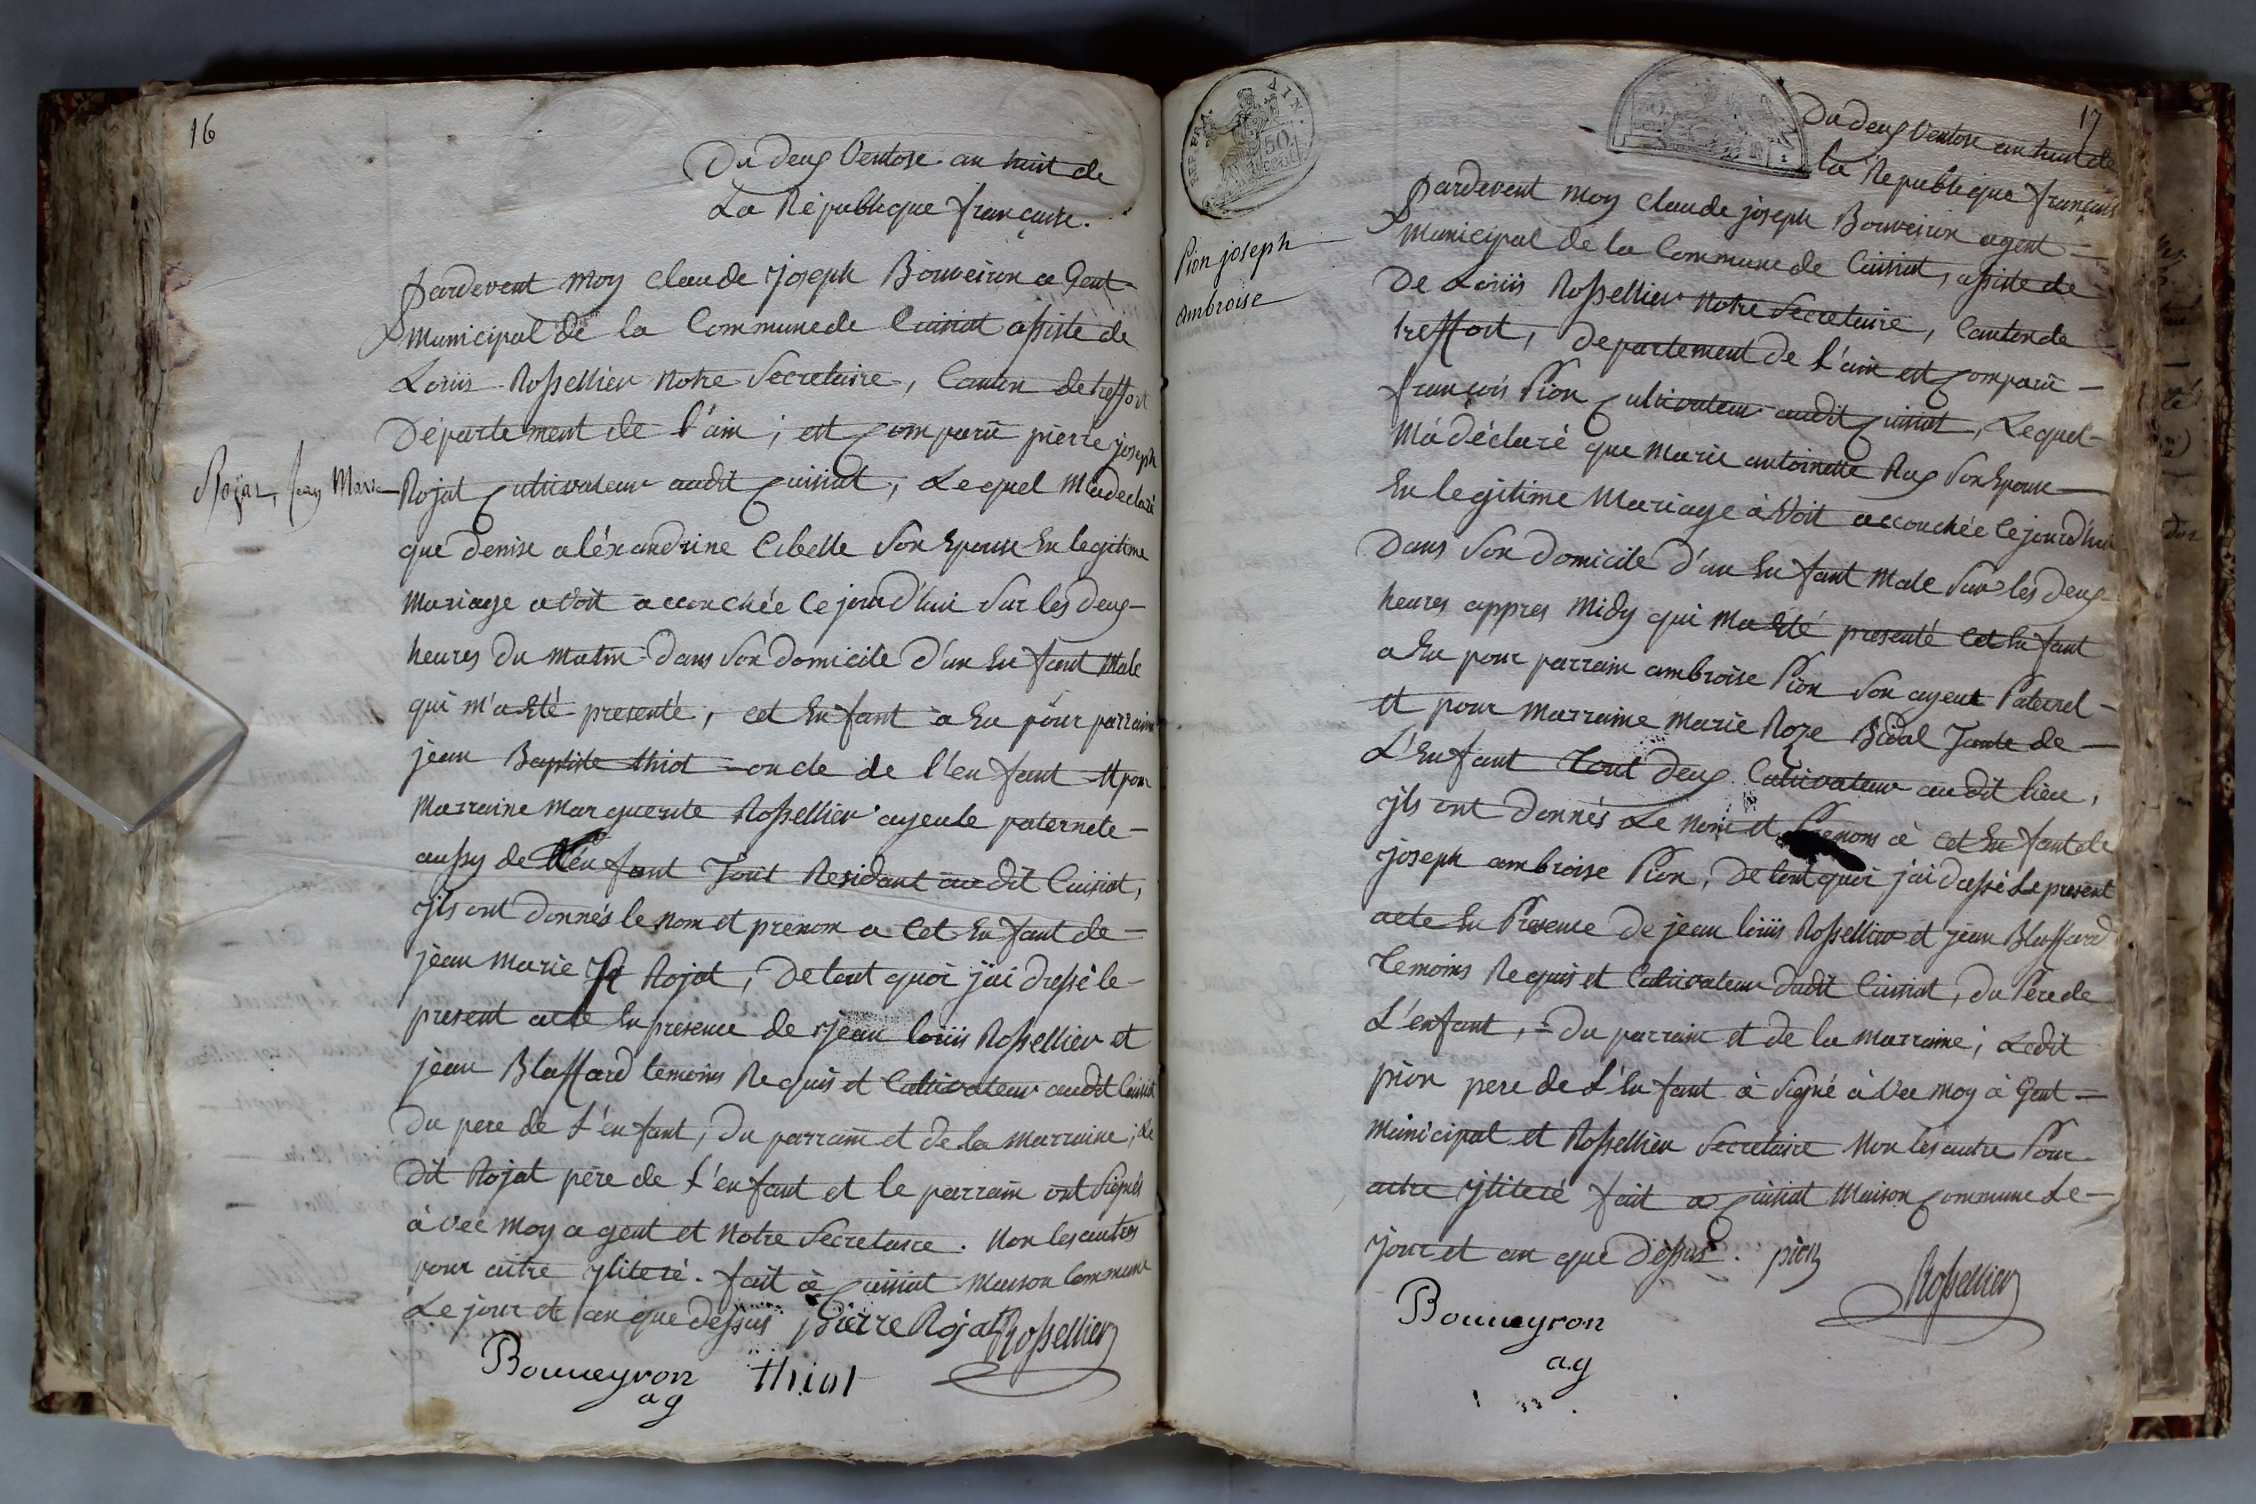 16
Du deux Ventose an huit de
La Republique francaise.
Pardevent moy Claude Joseph Bouveiron agent
municipal de la Commune de Cuisiat assiste de
Louis Rossellier notre Secretaire, Canton de treffort
Département de l'ain ; est comparu pierre joseph
Rojat, Jean Marie
Rojat cultivateur audit Cuisiat, Lequel m'a déclaré
que denise aléxandrine Cibelle son Epouse En legitime
mariage avoit accouchée cejourd'hui sur les deux
heures du matin dans son domicile d'un Enfant Male
qui m'a Eté presenté, cet Enfant a Eu pour parrain
jean Baptiste thiot oncle de l'enfant et pour
marraine marguerite Rossellier ayeule paternele
aussy de l'énfant Tout Residant audit Cuisiat,
jls ont donnés le nom et prenom a Cet Enfant de
jean marie Rojat, De tout quoi j'ai dressé le
present acte En presence de jean louis Rossellier et
jean Blaffard temoins Requis et Cultivateur audit Cuisiat
Du pere de L'énfant, du parrain et de la marraine ; Le
dit Rojat père de L'énfant et le parrain ont Signés
àvec moy agent et notre Secretaire. Non les autres
pour autre jliteré. fait à Cuisiat maison Commune
Le jour et an que dessus pierre Rojat Rossellier
Bouueyron thiot
ag
17
REP. FRA.
AIN.
50
Du deux Ventose an huit de
la Republique français
Pion joseph
Ambroise
Pardevent moy Claude joseph Bouveiron agent
municipal de la Commune de Cuisiat, assiste de
De Louis Rossellier Notre Secretaire, Canton de
treffort, Departement de l'ain est comparu
françois Pion Cultivateur audit Cuisiat, Lequel
M'a déclaré que Marie antoinette Rux son Epouse
En legitime Mariage àvoit accouchée Cejourd'hui
Dans son domicile d'un Enfant Male sur les deux
heures appres midy qui m'a Eté presenté Cet Enfant
a Eu pour parrain ambroise Pion son ayeul Paternel
et pour marraine marie Roze Bidal Tante de
L'Enfant Tout deux Cultivateur audit lieu,
jls ont donnés Le Nom et Prenoms à Cet Enfant de
joseph ambroise Pion, De tout quoi j'ai dressé Le present
acte En Presence de jean louis Rossellier et jean Blaffard
Temoins Requis et Cultivateur dudit Cuisiat, du Père de
L'enfant, = Du parrain et de la marraine ; Ledit
pion pere de L'Enfant à signé àvec moy àgent
municipal et Rossellier Secretaire Non les autre Pour
autre jliteré fait a Cuisiat Maison Commune Le
jour et an que dessus. pion
Rossellier
Bouueyron
a.g